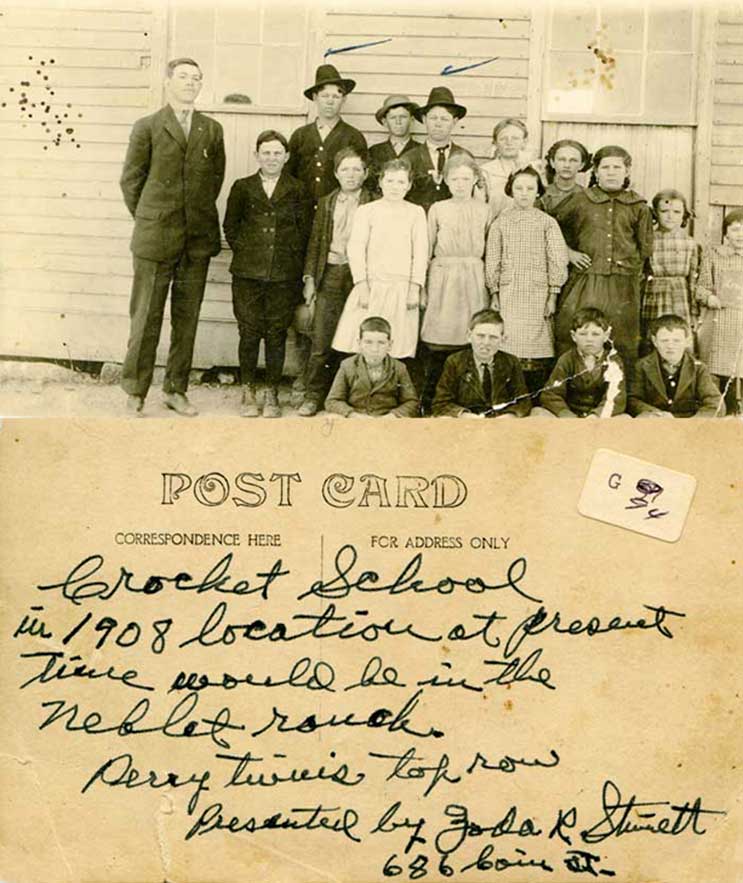 POST CARD
G 94
CORRESPONDENCE HERE
FOR ADDRESS ONLY
Crocket School
in 1908 location at present
time would be in the
Neblet ranch.
Perry twins top row
Presented by Zoda R Stinett
686 Coin St.